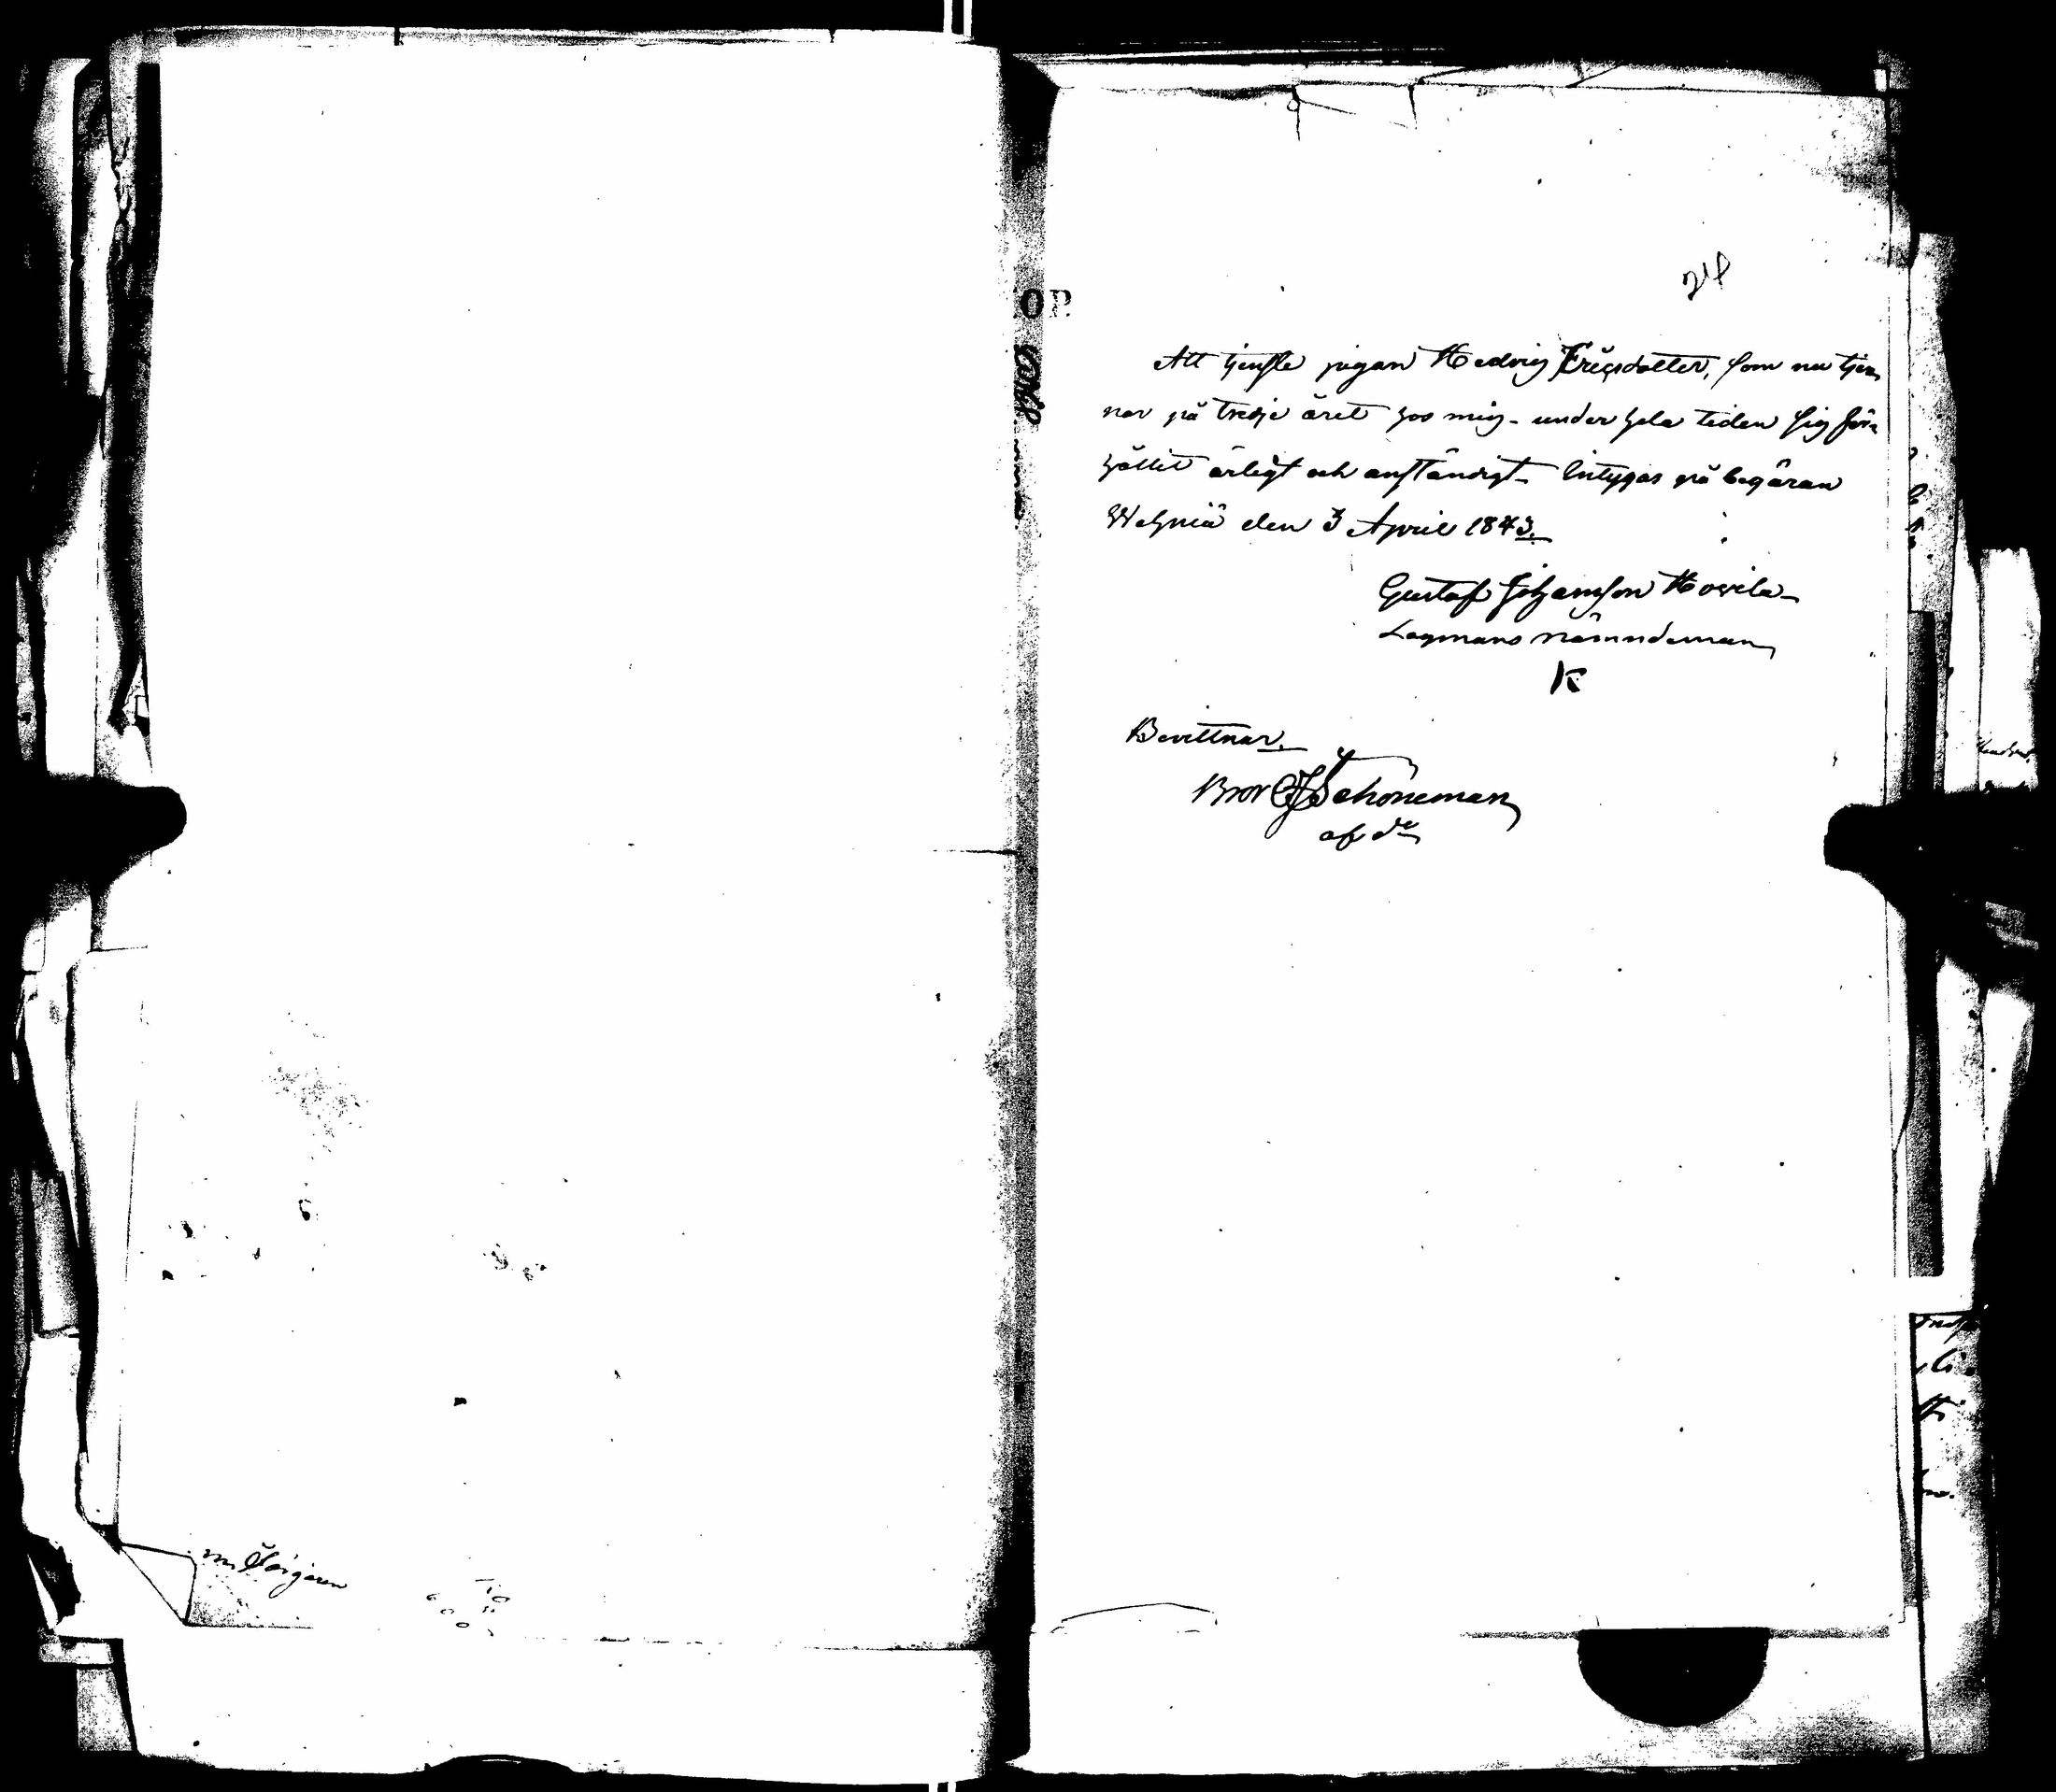 24
Att tjenste pigan Hedvig Ericsdotter, som nu tjen-
nar på tredje året hos mig - under hela tiden sig för-
hållit ärligt och anständigt - Intygas på begäran
Wehmä den 3 April 1843.
Gustaf Johansson Howila -
Lagmans nämndeman
K
Bevittnar.
Bror Schöneman
af